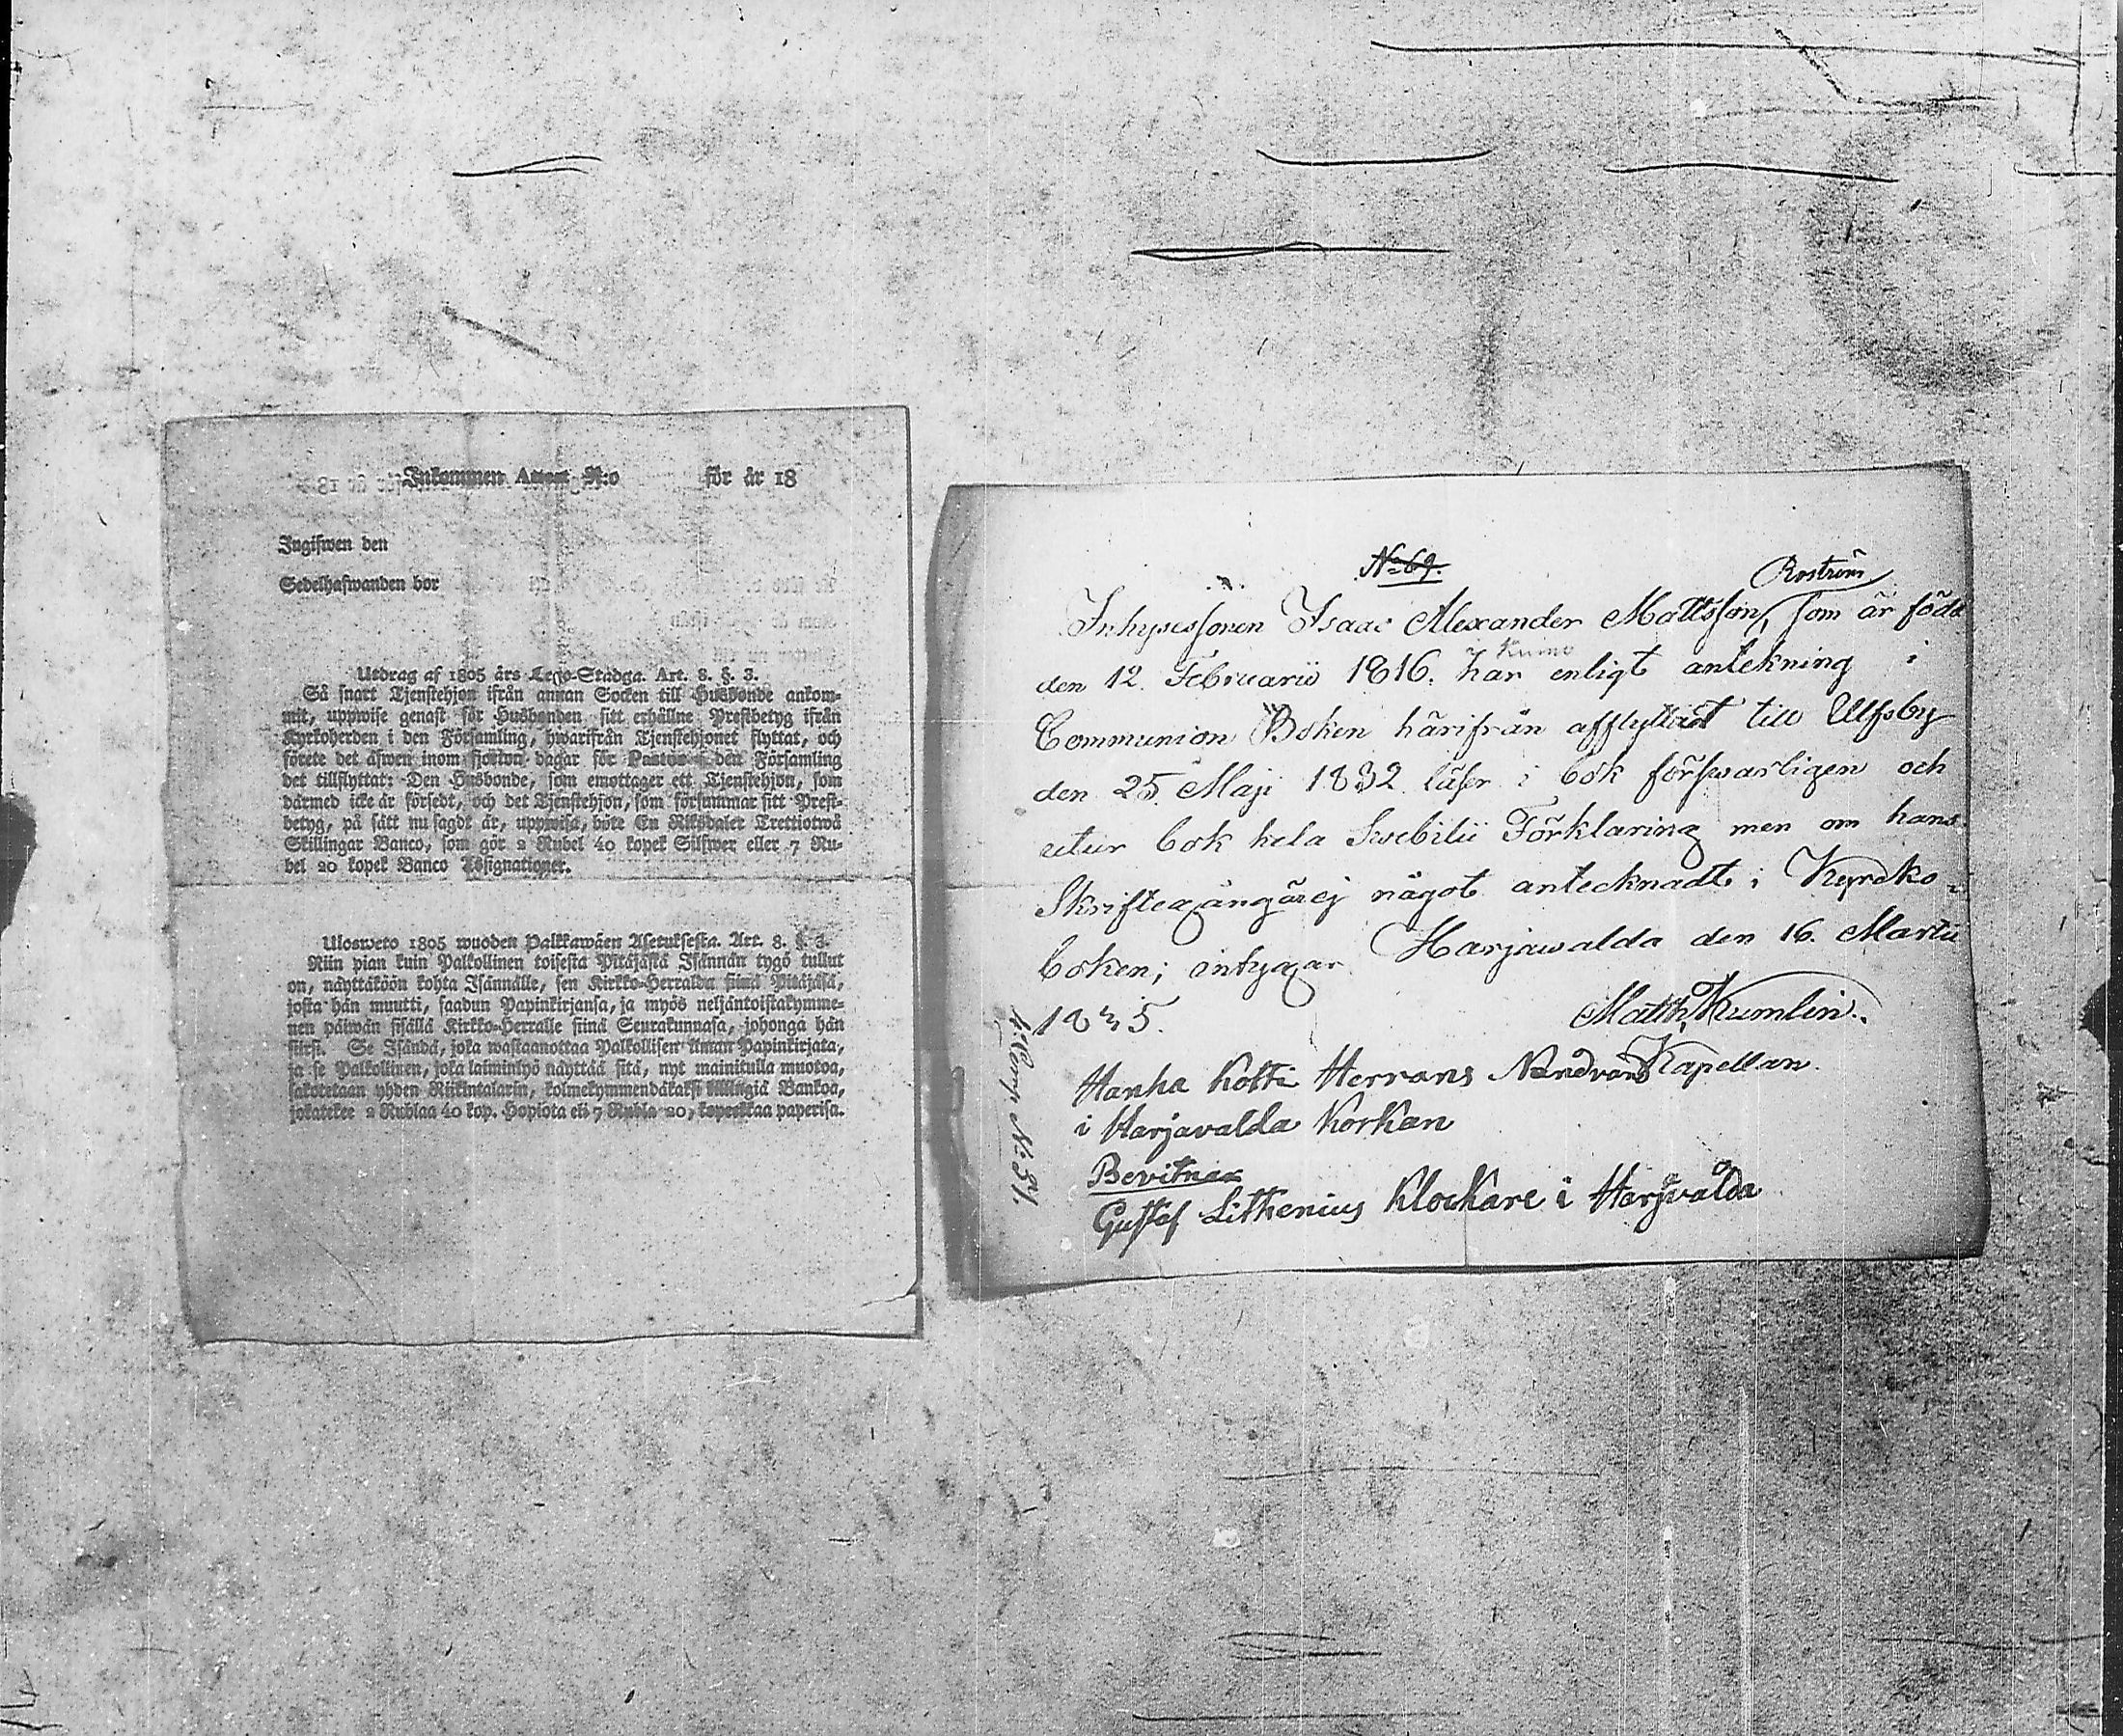 Inkommen Attest N:o för år 18
Ingifwen den
Sedelhafwanden bor
Utdrag af 1805 års Lego-Stadga. Art. 8. §. 3.
Så snart Tjenstehjon ifrån annan Socken till Husbonde ankom-
mit, uppwise genast för Husbonden sitt erhållne Prestbetyg ifrån
Kyrkoherden i den Församling, hwarifrån Tjenstehjonet flyttat, och
förete det äfwen inom fjorton dagar för Pastor i den Församling
det tillflyttat: Den Husbonde, som emottager ett Tjenstehjon, som
därmed icke är försedt, och det Tjenstehjon, som försummar sitt Prest-
betyg, på sätt nu sagdt är, uppwisa, böte En Riksdaler Trettiotwå
Skillingar Banco, som gör 2 Rubel 40 kopek Silfwer eller 7 Ru-
bel 20 kopek Banco Assignationer.
Ulosweto 1805 wuoden Palkkawäen Asetuksesta. Art. 8. §. 3.
Niin pian kuin Palkollinen toisesta Pitäjästä Isännän tygö tullut
on, näyttäköön kohta Isännälle, sen Kirkko-Herralda siinä Pitäjäsä,
josta hän muutti, saadun Papinkirjansa, ja myös neljäntoistakymme-
nen päiwän sisällä Kirkko-Herralle siinä Seurakunnasa, johonga hän
siirsi. Se Isändä, joka wastaanottaa Palkollisen ilman Papinkirjata,
ja se Palkollinen, joka laiminlyö näyttää sitä, nyt mainitulla muotoa,
sakotetaan yhden Riikintalarin, kolmekymmendäkaksi killingiä Bankoa,
jokatekee 2 Rublaa 40 kop. Hopiota eli 7 Rubla 20, kopeekkaa paperisa.
N:o 69.
Roström
Inhysessonen Isaac Alexander Mattsson, som är född
Kumo
den 12 Februarii 1816. har enligt antekning i
Communion Boken härifrån afflyttadt till Ulfsby
den 25. Maji 1832. läser i bok försvarligen och
utur bok hela Svebilii Förklaring men om hans
Skriftegång är ej något antecknadt i Kyrcko-
boken; intygar Harjawalda den 16. Martii
1835. Matth. Kumlin.
Kapellan.
Hanha Kotti Herrans Nandvard
i Harjavalda Korkan
Bevitnar
Gustaf Lithenius Klockare i Harjavalda
N:31.